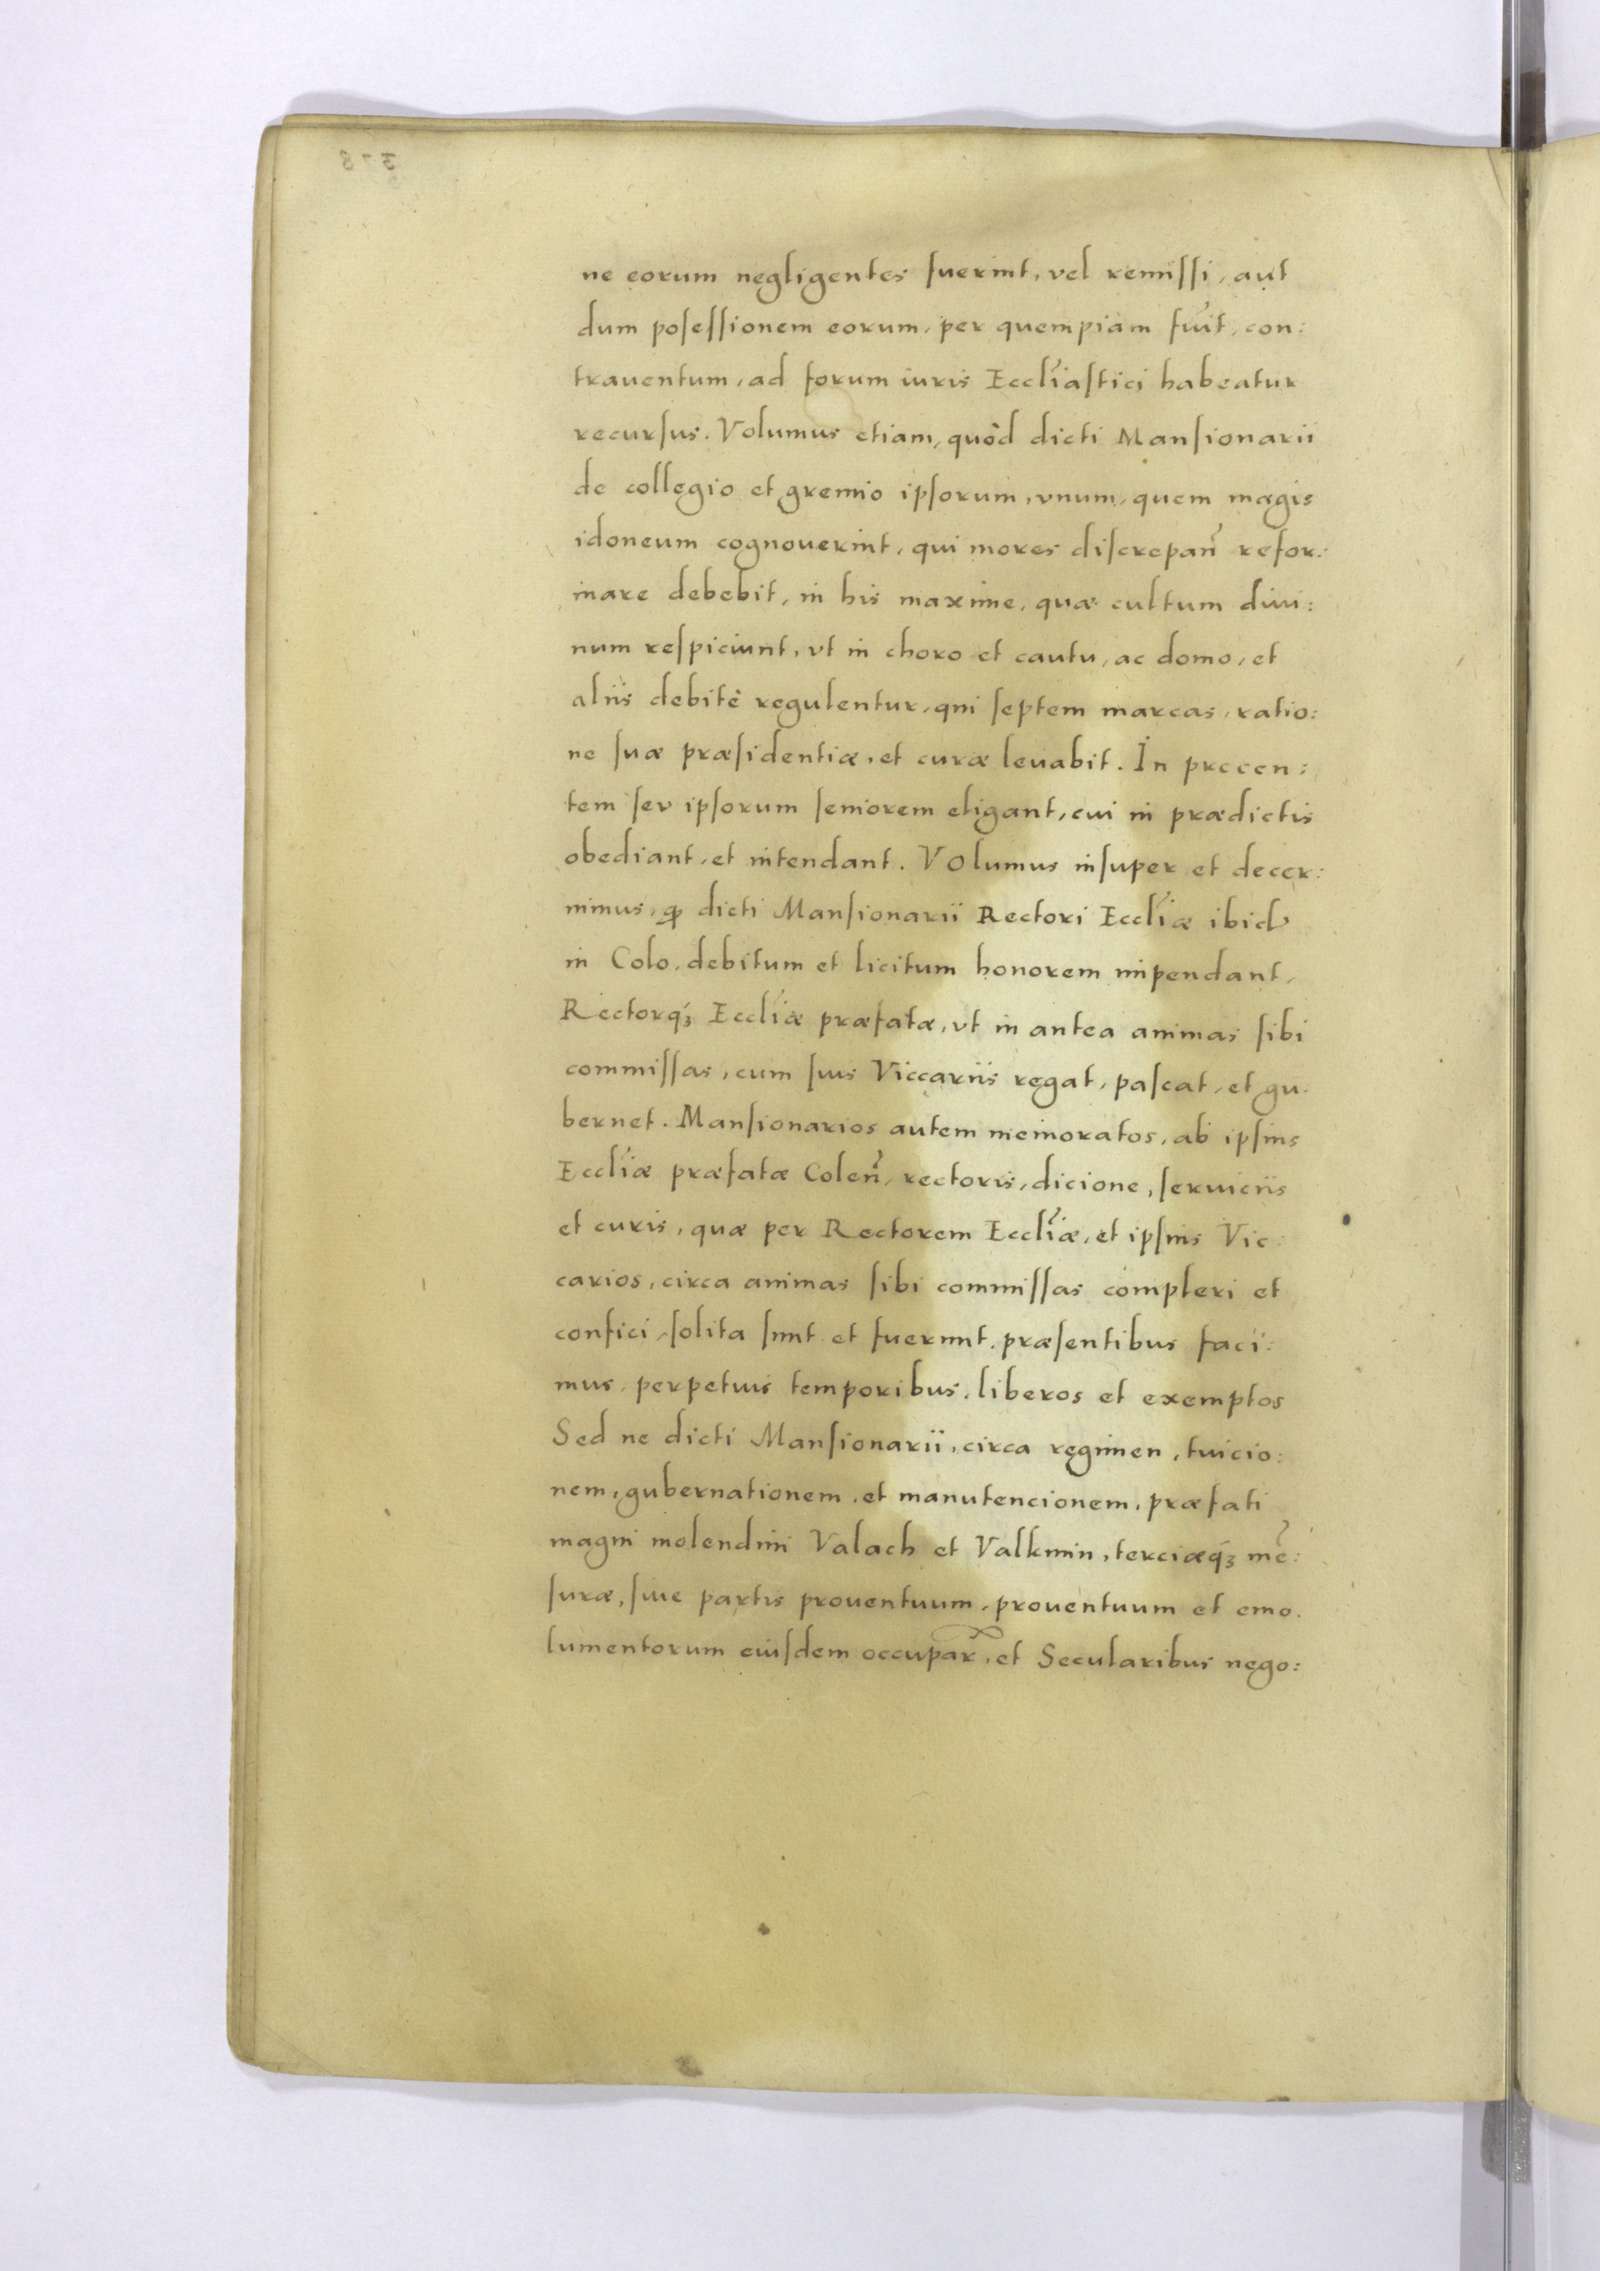 ne eorum negligentes fuerint, vel remissi, aut
dum posessionem eorum, per quempiam fuit̃, con:
trauentum, ad forum iuris Eccl̃iastici habeatur
recursus. Volumus etiam, quòd dicti Mansionarii
de collegio et gremio ipsorum, vnum, quem magis
idoneum cognouerint, qui mores discrepañ refor:
mare debebit, in his maxime, quæ cultum diui:
num respiciunt, vt in choro et cautu, ac domo, et
aliis debitè regulentur, qui septem marcas, ratio:
ne suæ præsidentiæ, et curæ leuabit. In precen:
tem seu ipsorum seniorem eligant, cui in prædictis
obediant, et intendant. Volumus insuper et decer:
nimus, ꝙ dicti Mansionarii Rectori Eccl̃iæ ibid
in Colo, debitum et licitum honorem impendant,
Rectorqꝫ Eccl̃iæ præfatæ, vt in antea animas sibi
commissas, cum suis Viccariis regat, pascat, et gu.
bernet. Mansionarios autem memoratos, ab ipsius
Eccl̃iæ præfatæ Coleñ, rectoris, dicione, seruiciis
et curis, quæ per Rectorem Eccl̃iæ, et ipsius Vic:
carios, circa animas sibi commissas compleri et
confici, solita sunt et fuerunt, præsentibus faci:
mus, perpetuis temporibus, liberos et exemptos
Sed ne dicti Mansionarii, circa regimen, tuicio:
nem, gubernationem, et manutencionem, præfati
magni molendini Valach et Valkmin, terciæqꝫ me͂:
suræ, siue partis prouentuum, prouentuum et emo.
lumentorum eiusdem occupar̃, et Secularibus nego: